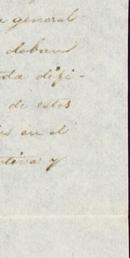 general
deban
da difi-
de estos
es en el
ativa y